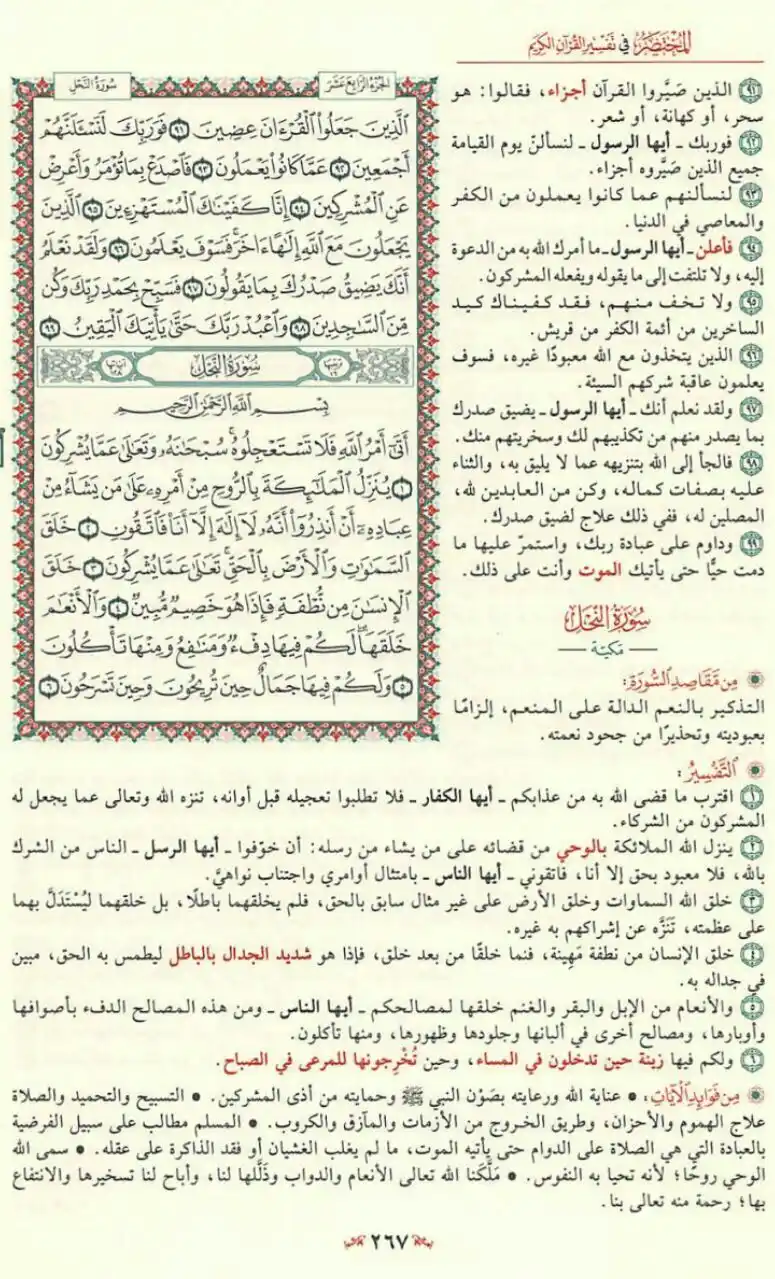 المختصر في تفسير القرآن الكريم
الجزء الرابع عشر
سورة النحل
الَّذِينَ جَعَلُوا الْقُرْءَانَ عِضِينَ ٩١ فَوَرَبِّكَ لَنَسْـَٔلَنَّهُمْ
أَجْمَعِينَ ٩٢ عَمَّا كَانُوا يَعْمَلُونَ ٩٣ فَاصْدَعْ بِمَا تُؤْمَرُ وَأَعْرِضْ
عَنِ الْمُشْرِكِينَ ٩٤ إِنَّا كَفَيْنَاكَ الْمُسْتَهْزِءِينَ ٩٥ الَّذِينَ
يَجْعَلُونَ مَعَ اللَّهِ إِلَٰهًا ءَاخَرَ فَسَوْفَ يَعْلَمُونَ ٩٦ وَلَقَدْ نَعْلَمُ
أَنَّكَ يَضِيقُ صَدْرُكَ بِمَا يَقُولُونَ ٩٧ فَسَبِّحْ بِحَمْدِ رَبِّكَ وَكُن
مِّنَ السَّاجِدِينَ ٩٨ وَاعْبُدْ رَبَّكَ حَتَّىٰ يَأْتِيَكَ الْيَقِينُ ٩٩
سورة النحل
ترتيبها ١٦
آياتها ١٢٨
بِسْمِ اللَّهِ الرَّحْمَٰنِ الرَّحِيمِ
أَتَىٰ أَمْرُ اللَّهِ فَلَا تَسْتَعْجِلُوهُ سُبْحَانَهُ وَتَعَالَىٰ عَمَّا يُشْرِكُونَ
١ يُنَزِّلُ الْمَلَائِكَةَ بِالرُّوحِ مِنْ أَمْرِهِ عَلَىٰ مَن يَشَاءُ مِنْ
عِبَادِهِ أَنْ أَنذِرُوا أَنَّهُ لَا إِلَٰهَ إِلَّا أَنَا فَاتَّقُونِ ٢ خَلَقَ
السَّمَاوَاتِ وَالْأَرْضَ بِالْحَقِّ تَعَالَىٰ عَمَّا يُشْرِكُونَ ٣ خَلَقَ
الْإِنسَانَ مِن نُّطْفَةٍ فَإِذَا هُوَ خَصِيمٌ مُّبِينٌ ٤ وَالْأَنْعَامَ
خَلَقَهَا لَكُمْ فِيهَا دِفْءٌ وَمَنَافِعُ وَمِنْهَا تَأْكُلُونَ
٥ وَلَكُمْ فِيهَا جَمَالٌ حِينَ تُرِيحُونَ وَحِينَ تَسْرَحُونَ ٦
٩١ الذين صَيَّروا القرآن أجزاء، فقالوا: هو
سحر، أو كهانة، أو شعر.
٩٢ فوربك ـ أيها الرسول ـ لنسألنّ يوم القيامة
جميع الذين صَيَّروه أجزاء.
٩٣ لنسألنهم عما كانوا يعملون من الكفر
والمعاصي في الدنيا.
٩٤ فأعلن ـ أيها الرسول ـ ما أمرك الله به من الدعوة
إليه، ولا تلتفت إلى ما يقوله ويفعله المشركون.
٩٥ ولا تخف منهم، فقد كفيناك كيد
الساخرين من أئمة الكفر من قريش.
٩٦ الذين يتخذون مع الله معبودًا غيره، فسوف
يعلمون عاقبة شركهم السيئة.
٩٧ ولقد نعلم أنك ـ أيها الرسول ـ يضيق صدرك
بما يصدر منهم من تكذيبهم لك وسخريتهم منك.
٩٨ فالجأ إلى الله بتنزيهه عما لا يليق به، والثناء
عليه بصفات كماله، وكن من العابدين لله،
المصلين له، ففي ذلك علاج لضيق صدرك.
٩٩ وداوم على عبادة ربك، واستمرّ عليها ما
دمت حيًّا حتى يأتيك الموت وأنت على ذلك.
سورة النحل
ـ مكية ـ
من مقاصد السورة:
التذكير بالنعم الدالة على المنعم، إلزامًا
بعبوديته وتحذيرًا من جحود نعمته.
التفسير:
١ اقترب ما قضى الله به من عذابكم ـ أيها الكفار ـ فلا تطلبوا تعجيله قبل أوانه، تنزه الله وتعالى عما يجعل له
المشركون من الشركاء.
٢ ينزل الله الملائكة بالوحي من قضائه على من يشاء من رسله: أن خوّفوا ـ أيها الرسل ـ الناس من الشرك
بالله، فلا معبود بحق إلا أنا، فاتقوني ـ أيها الناس ـ بامتثال أوامري واجتناب نواهيَّ.
٣ خلق الله السماوات وخلق الأرض على غير مثال سابق بالحق، فلم يخلقهما باطلًا، بل خلقهما ليُسْتَدَلَّ بهما
على عظمته، تَنَزَّه عن إشراكهم به غيره.
٤ خلق الإنسان من نطفة مَهِينة، فنما خلقًا من بعد خلق، فإذا هو شديد الجدال بالباطل ليطمس به الحق، مبين
في جداله به.
٥ والأنعام من الإبل والبقر والغنم خلقها لمصالحكم ـ أيها الناس ـ ومن هذه المصالح الدفء بأصوافها
وأوبارها، ومصالح أخرى في ألبانها وجلودها وظهورها، ومنها تأكلون.
٦ ولكم فيها زينة حين تدخلون في المساء، وحين تُخْرِجونها للمرعى في الصباح.
من فوائد الآيات: • عناية الله ورعايته بصَوْن النبي ﷺ وحمايته من أذى المشركين. • التسبيح والتحميد والصلاة
علاج الهموم والأحزان، وطريق الخروج من الأزمات والمآزق والكروب. • المسلم مطالب على سبيل الفرضية
بالعبادة التي هي الصلاة على الدوام حتى يأتيه الموت، ما لم يغلب الغشيان أو فقد الذاكرة على عقله. • سمى الله
الوحي روحًا؛ لأنه تحيا به النفوس. • مَلَّكَنا الله تعالى الأنعام والدواب وذَلَّلها لنا، وأباح لنا تسخيرها والانتفاع
بها؛ رحمة منه تعالى بنا.
٢٦٧